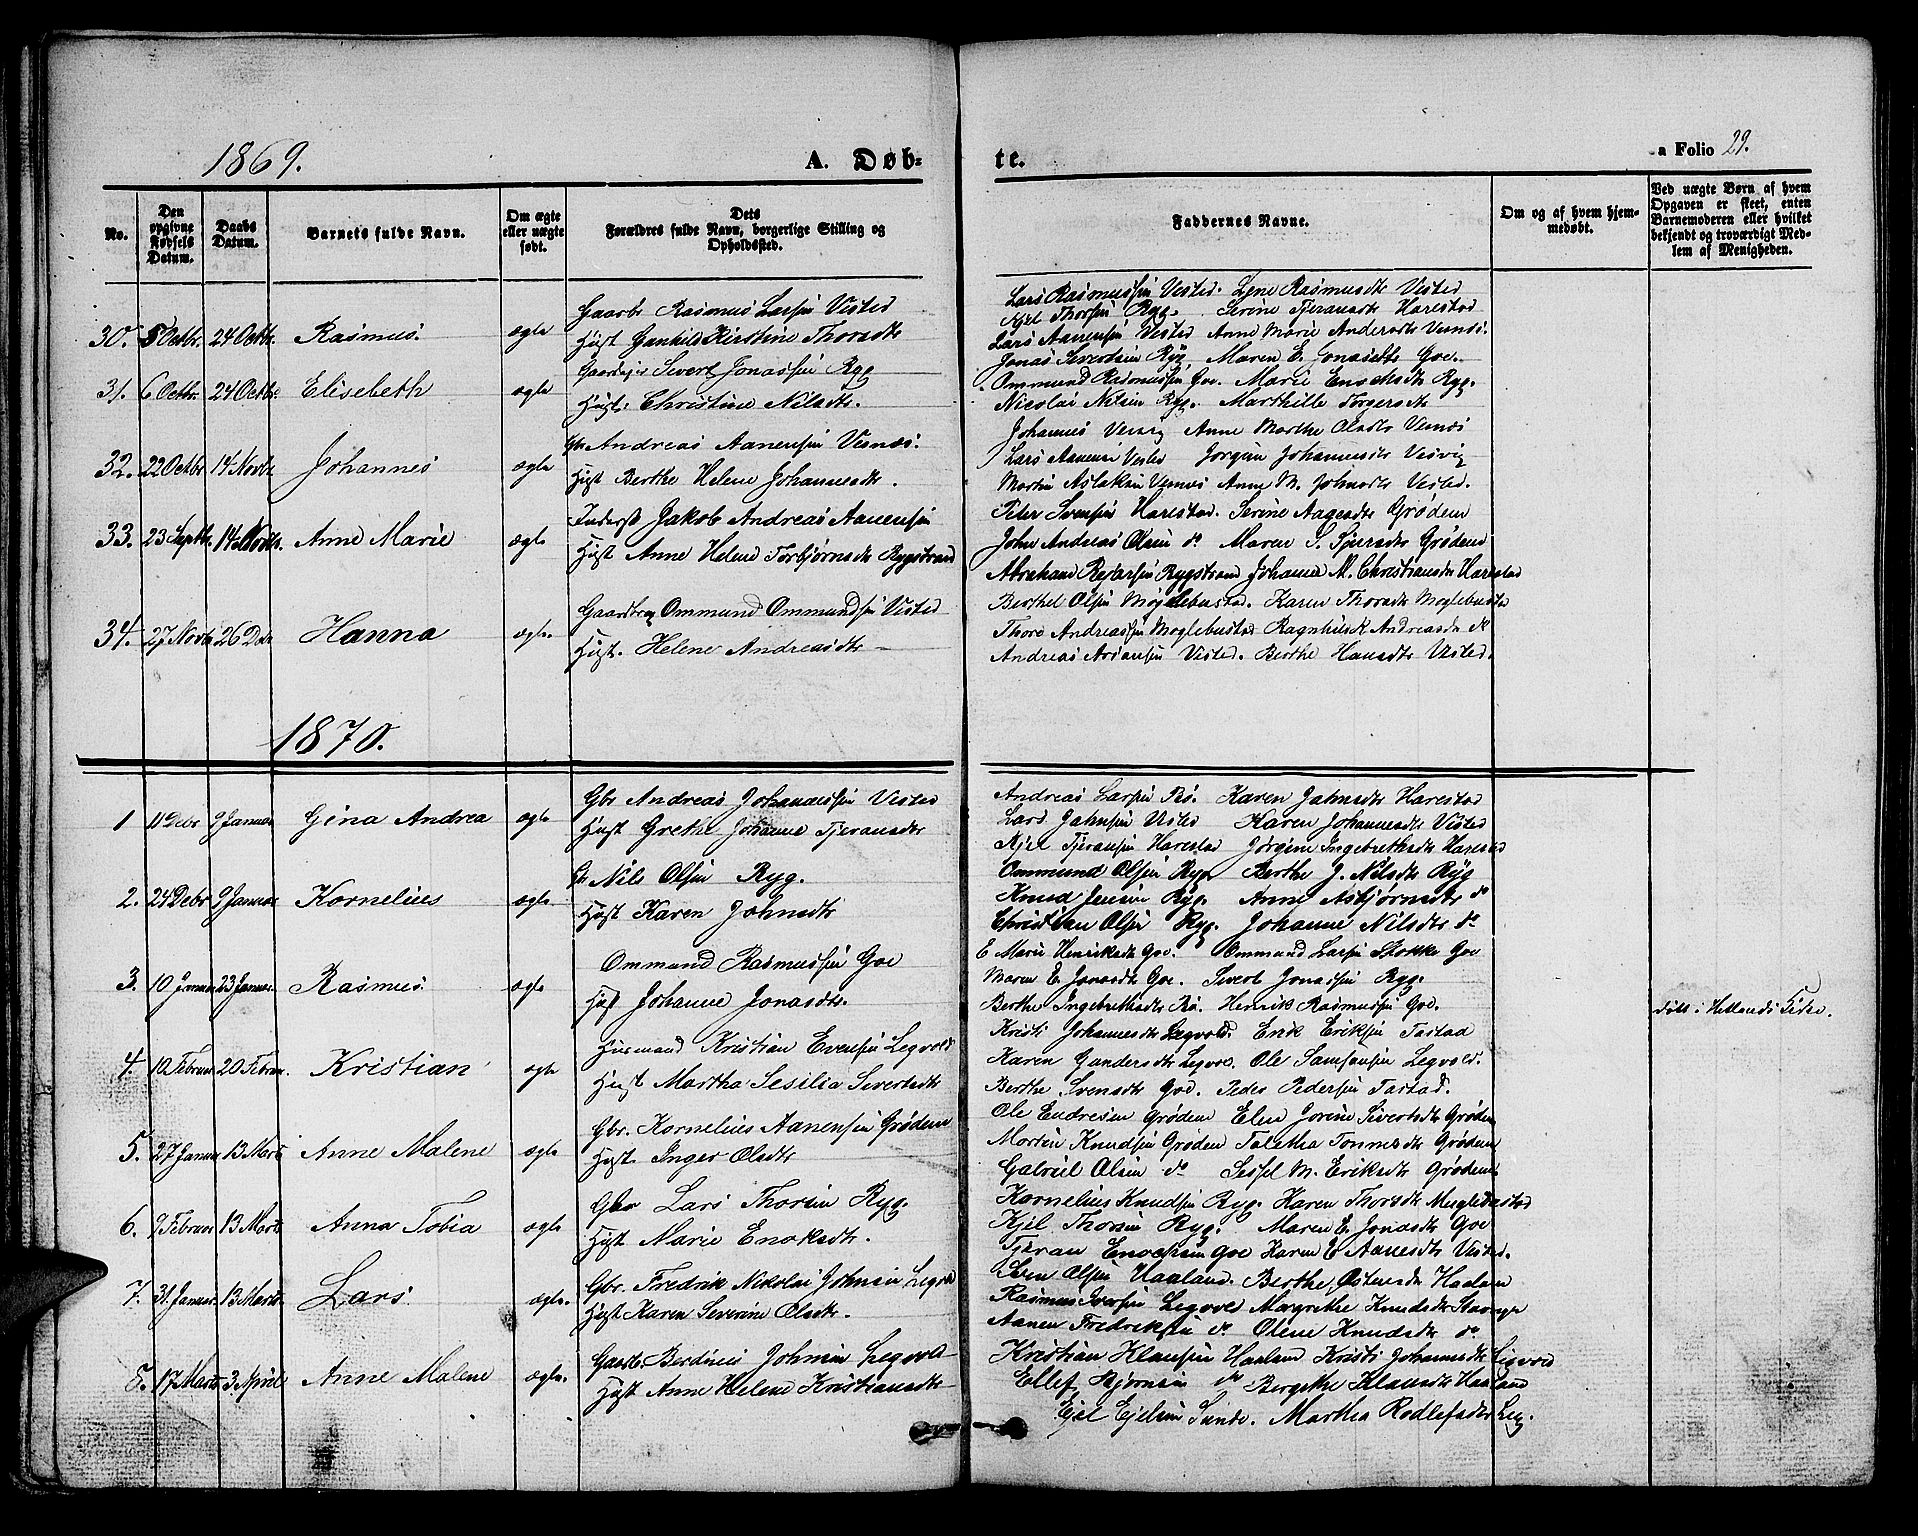 1869.
A. Døb-
te.
a Folio 29.
No.
Den opgivne Fødsels Datum.
Daabs Datum.
Barnets fulde Navn.
Om ægte eller uægte født.
Dets
Forældres fulde Navn, borgerlige Stilling og Opholdssted.
Faddernes Navne.
Om og af hvem hjemmedøbt.
Ved uægte Børn af hvem Opgaven er skeet, enten Barnemoderen eller hvilket bekjendt og troværdigt Medlem af Menigheden.
30. 5 Octbr. 24 Octbr. Rasmus. ægte
Gaardb Rasmus Larsen Visted
Hust Gunhild Kirstine Thorsdtr
Lars Rasmussen Visted. Lene Rasmusdtr Visted
Kjel Thorsen Ryg. Serine Tjeransdtr Harestad
Lars Aanensen Visted Anne Marie Andersdtr Visnæs.
31. 6 Octbr. 24 Octbr. Elisebeth ægte
Sivert Jonassen Ryg
Hust. Christine Nilsdtr.
Jonas Sivertsen Ryg Maren E. Jonasdtr Goe.
Ommund Rasmussen Goe. Marie Enochsdtr Ryg.
Nicolai Nilsen Ryg. Marthille Torgersdtr
32. 22 Octbr 14 Novbr Johannes ægte
Gbr Andreas Aanensen Visnæs.
Hust Berthe Helene Johannesdtr.
Johannes Visvig Anne Marthe Olsdtr Visnæs
Lars Aanensen Visted Jorgine Johannesdtr Visvig
Martin Aslaksen Visnæs Anne M. Johnsdtr Visted.
33. 23 Septbr. 14 Novbr. Anne Marie ægte
Inderst Jakob Andreas Aanensen
Hust Anne Helene Torbjørnsdtr Rygstrand
Peter Svensen Harestad. Serine Aagesdtr Grødem
John Andreas Olsen do Maren S. Sjursdtr Grødem
Abraham Pedersen Rygstrand Johanne M. Christiansdtr Harestad
34. 27 Novbr 26 Dcbr Hanna ægte.
Gaardbr Ommund Ommundsen Visted
Hust. Helene Andreasdtr
Berthel Olsen Møglebustad. Karen Thorsdtr Moglebustad
Thore Andreassen Moglebustad Ragnhild Andreasdtr
Andreas Visted. Berthe Hansdtr Visted.
1870.
1 11 Debr 9 Januar Gina Andrea ægte
Gbr Andreas Johannessen Visted
Hust Grethe Johanne Tjeransdtr
Andreas Larsen Bø. Karen Jahnsdtr Harestad
Lars Jahnsen Visted Karen Johannesdtr Visted
Kjel Tjeransen Harestad Jørgine Ingebrethsdtr Harestad
2. 24 Debr 9 Januar Kornelius ægte
Gbr Nils Olsen Ryg.
Hust Karen Johnsdtr
Ommund Olsen Ryg Berthe J. Nilsdtr Ryg
Knud Jensen Ryg. Anne Asbjørnsdtr do
Christian Olsen Ryg. Johanne Nilsdtr do
3. 10 Januar 23 Januar. Rasmus. ægte
Ommund Rasmussen Goe
Hust Johanne Jonasdtr.
E Marie Henriksdtr Goe. Ommund Larsen Stokke Goe
Maren E. Jonasdtr Goe. Sivert Jonassen Ryg.
Berthe Ingebrethsdtr Bø. Henrik Rasmussen Goe.
døbt i Hetlands Kirke.
4. 10 Februar 20 Februar. Kristian ægte
Husmand Kristian Evensen Legvold
Hust Martha Sesilia Sivertsdtr
Kristi Johannesdtr Legvold. Erik Eriksen Tastad
Karen Gundersdtr Legvol. Ole Samsonsen Legvold.
Berthe Svensdtr Goe. Peder Pedersen Tastad.
5. 27 Januar 13 Marts Anne Malene ægte
Gbr. Kornelius Aanensen Grødem
Hust. Inger Olsdtr
Ole Endresen Grødem Elen Jorine Sivertsdtr Grødem
Morten Knudsen Grodem Taletha Tonnesdtr Grødem
Gabriel Olsen do Sessel M. Eriksdtr Grødem
6. 9 Februar 13 Marts Anna Tobia ægte
Gbr Lars Thorsen Ryg.
Hust Marie Enoksdtr.
Kornelius Knudsen Ryg. Karen Thorsdtr Muglebustad
Kjel Thorsen Ryg. Maren E. Jonasdtr Goe
Tjeran Enochsen Goe Karen E Aanesdtr Visted.
7. 31 Januar. 13 Marts. Lars ægte.
Gbr. Fredrik Nikolai Johnsen Legvold
Hust Karen Severine Olsdtr.
Sven Olsen Haaland. Berthe Ostensdtr Haaland
Rasmus Iversen Legvold Margrethe Knudsdtr Stavnge
Aanen Fredriksen do Olene Knudsdtr do
8. 17 Marts 3 April Anne Malene ægte.
Gaardb. Berdines Johnsen Legvold
Hust Anne Helene Kristiansdtr
Kristian Klausen Haaland Kristi Johannesdtr Ligvold
Ellef Bjørnsen do Bergithe Klausdtr Haaland
Ejel Ejelsen Sunde. Martha Rodlefsdtr Leg.